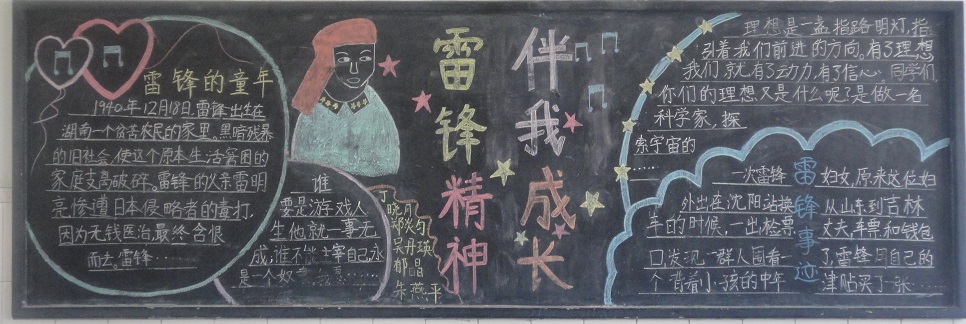 雷锋的童年
1940年12月18日,雷锋出生在
湖南一个贫苦农民的家里。黑暗残暴
的旧社会,使这个原本生活窘困的
家庭支离破碎。雷锋的父亲雷明
亮惨遭日本侵略者的毒打,
因为无钱医治,最终含恨
而去。雷锋……
谁
要是游戏人
生他就一事无
成,谁不能主宰自己,永
是一个奴隶
雷锋精神
伴我成长
丁晓月
吴丹瑛
郁晶
朱燕平
理想是一盏指路明灯,指
引着我们前进的方向。有了理想
我们就有了动力,有了信心,同学们
你们的理想又是什么呢?是做一名
科学家,探
索宇宙的
……
雷锋事迹
一次雷锋
外出在沈阳站换
车的时候,一出检票
口,发现一群人围着一
个背着小孩的中年
妇女,原来这位妇
从山东到吉林
丈夫,车票和钱包
了,雷锋用自己的
津贴买了一张…